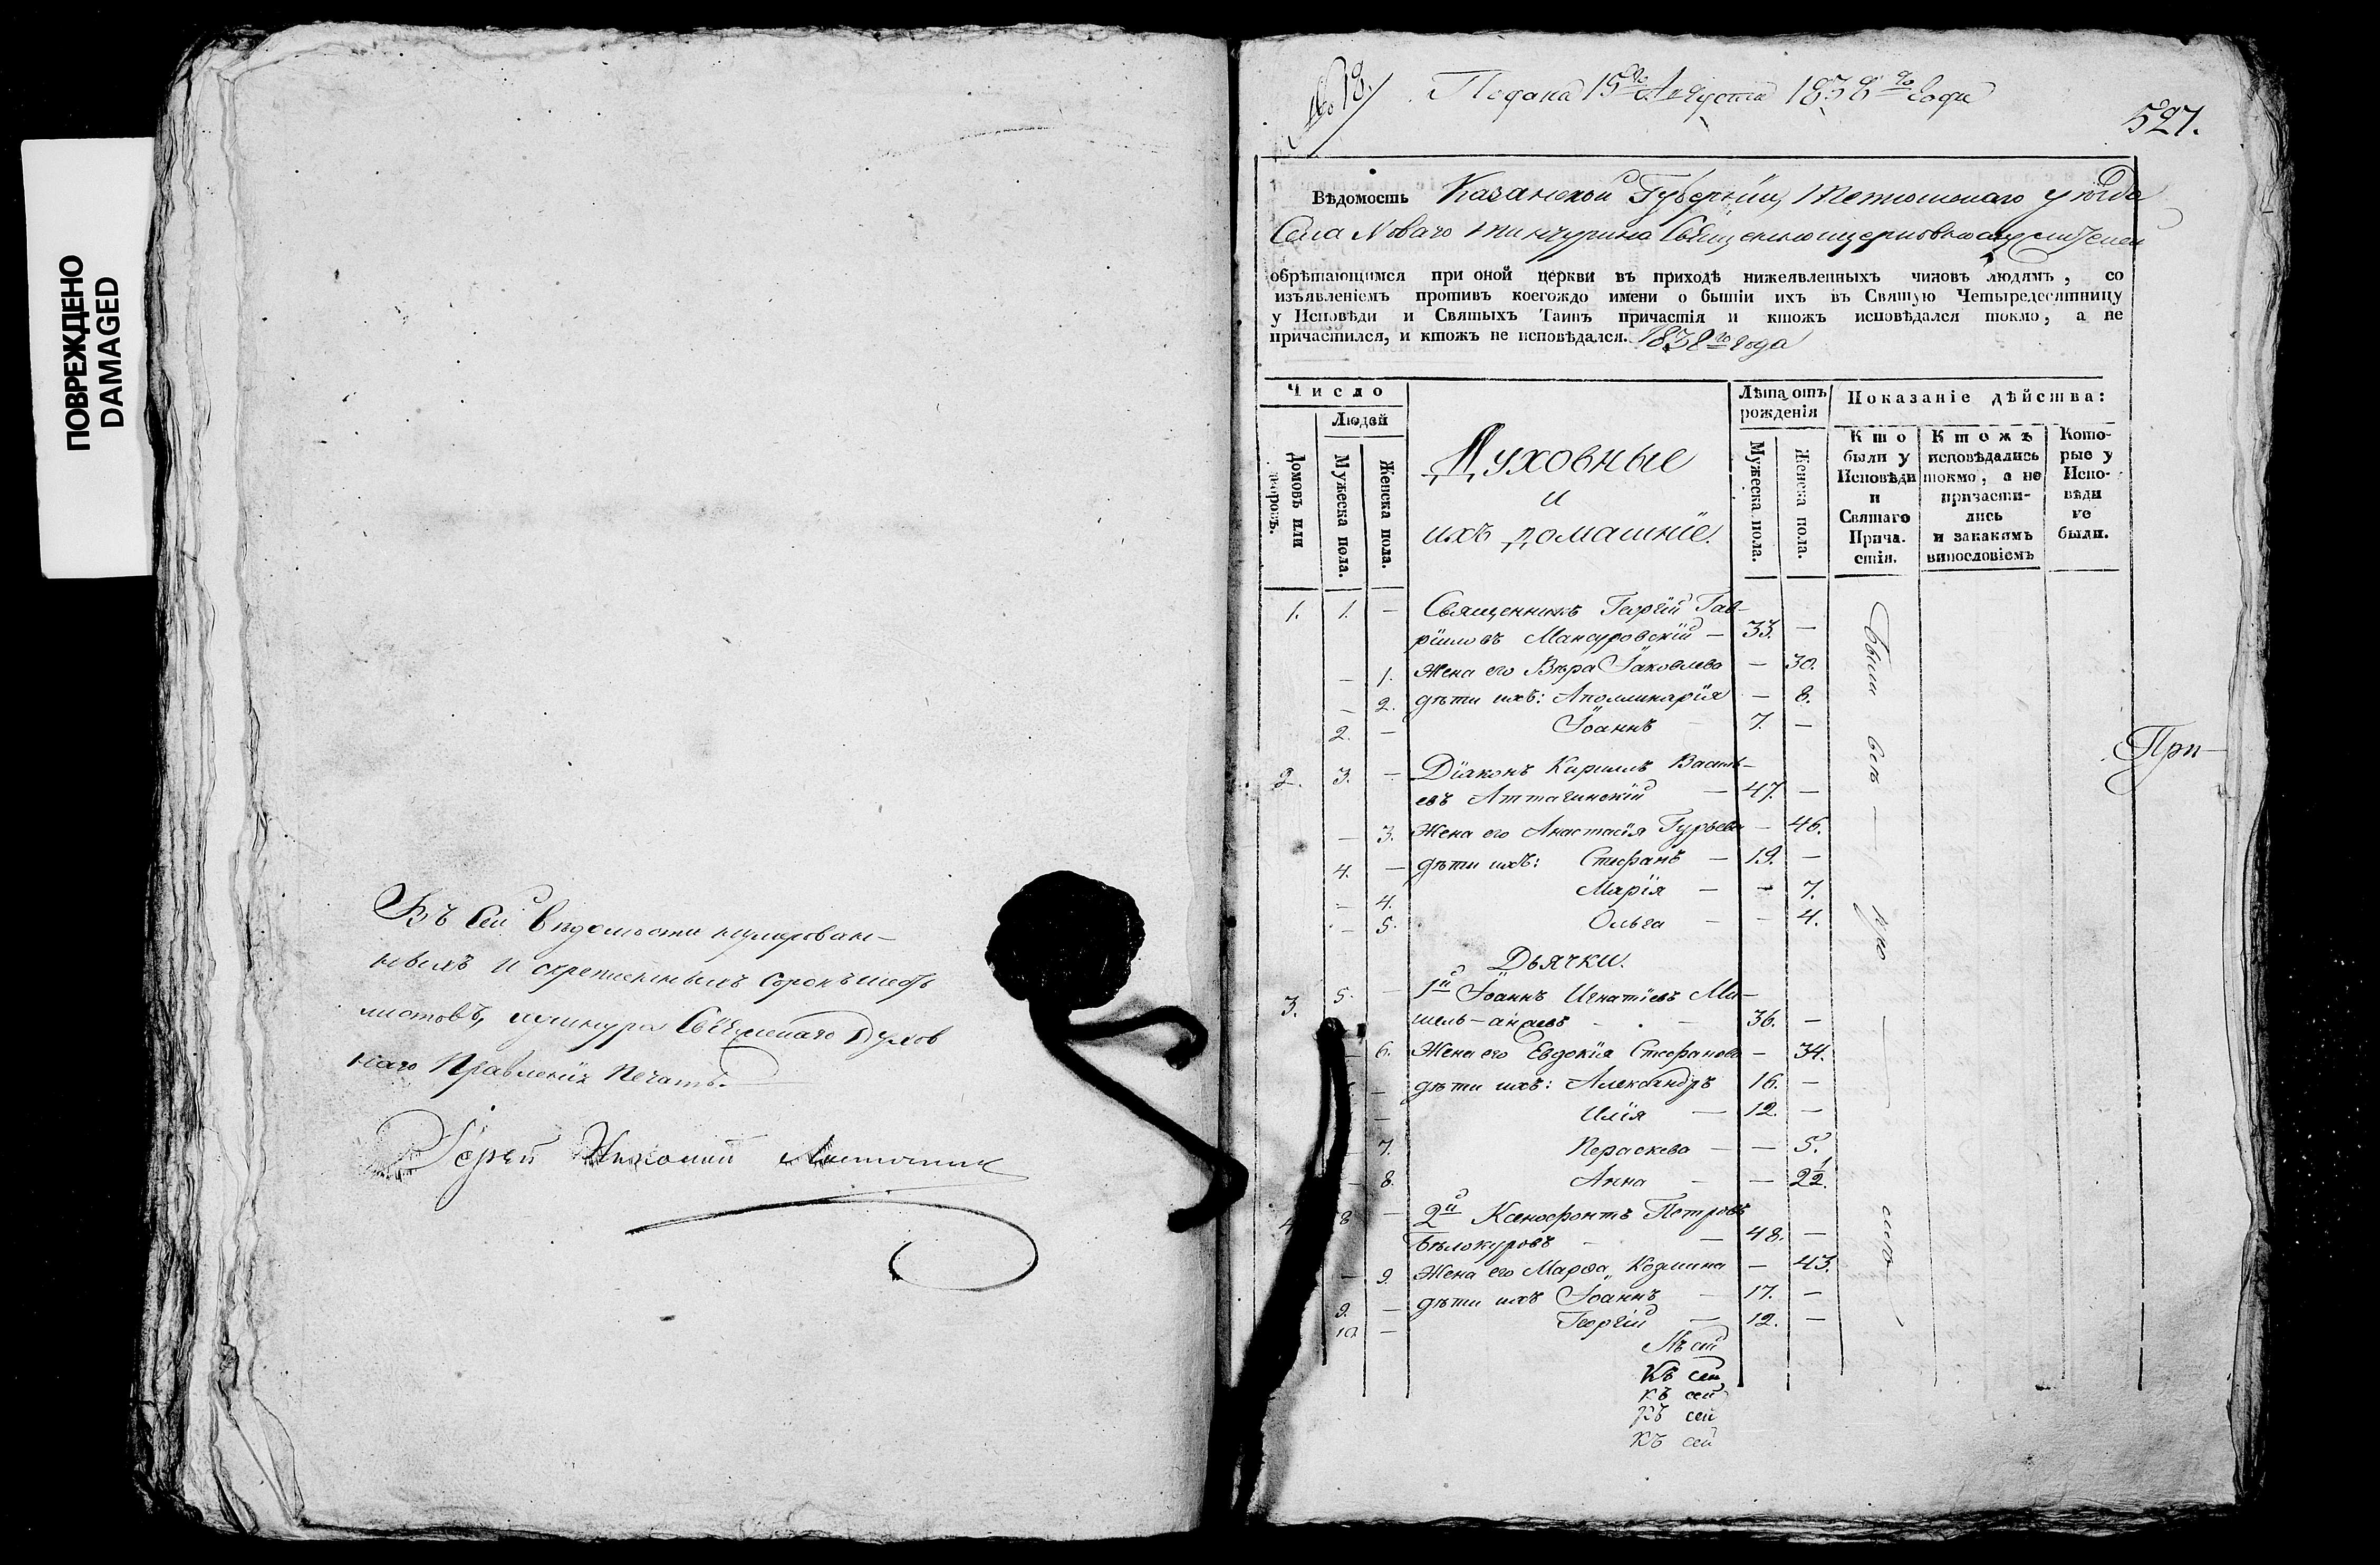 ПОВРЕЖДЕНО
DAMAGED
Въ сей вѣдомости нумерован-
ныхъ и скрепленныхъ сорокъ шесть
листовъ, шнура Свіяжскаго Духов
наго Правленія печать.
Іерей Николай
№ 13.
Подана 15го Августа 1838го года
527.
Вѣдомость Казанской Губерніи, Тетюшскаго уѣзда
Села Новаго Тинчурина Священноцерковнослужителей
обрѣтающимся при оной церкви въ приходѣ нижеявленныхъ чиновъ людямъ, со
изъявленіемъ противъ коегождо имени о бытіи ихъ въ Святую Четыредесятницу
у Исповѣди и Святыхъ Таинъ причастія и ктожъ исповѣдался токмо, а не
причастился, и ктожъ не исповѣдался. 1838го года
Число
Людей
Домовъ или дворовъ.
Мужеска пола.
Женска пола.
Духовные
и
ихъ домашніе.
Лѣта отъ рожденія
Мужеска пола.
Женска пола.
Показаніе дѣйства:
Кто были у Исповѣди и Святаго Прича- стія.
Ктожъ исповѣдались токмо, а не причасти- лись и закакимъ винословіемъ
Кото- рые у Испо- вѣди не были.
1. 1. — Священникъ Георгій Гав-
ріиловъ Мансуровскій — 33. —
— 1. Жена его Вѣра Іаковлева — 30.
— 2. дѣти ихъ: Аполлинарія — 8.
2. — Іоаннъ 7. —
2. 3. — Діаконъ Кириллъ Василь-
евъ Аттагинскій — 47. —
— 3. Жена его Анастасія Гурьева — 46.
4. — дѣти ихъ: Стефанъ — 19. —
— 4. Марія — — 7.
— 5. Ольга — — 4.
Дьячки.
3. 5. — 1й Іоаннъ Игнатіевъ Ми-
шель-анаевъ — 36. —
— 6. Жена его Евдокія Стефанова — 34.
— дѣти ихъ: Александръ 16. —
— Илія — 12. —
7. Пераскева — — 5.
— 8. Анна — — 2½.
4. 8 — 2й Ксенофонтъ Петровъ
Бѣлокуровъ — 48. —
— 9. Жена его Марѳа Козмина — 43.
9. — дѣти ихъ Іоаннъ — 17. —
10. — Георгій — 12. —
Были всѣ — —
При-
Къ сей
Къ сей
къ сей
къ сей
къ сей